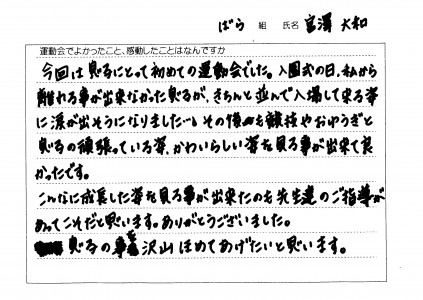 ばら 組 氏名 宮澤 大和
運動会でよかったこと、感動したことはなんですか
今回は息子にとって初めての運動会でした。入園式の日、私から
離れる事が出来なかった息子が、きちんと並んで入場して来る姿
に涙が出そうになりました… その後も競技やおゆうぎと
息子の頑張っている姿、かわいらしい姿を見る事が出来て良
かったです。
こんなに成長した姿を見る事が出来たのも先生達のご指導が
あってこそだと思います。ありがとうございました。
息子の事を沢山ほめてあげたいと思います。